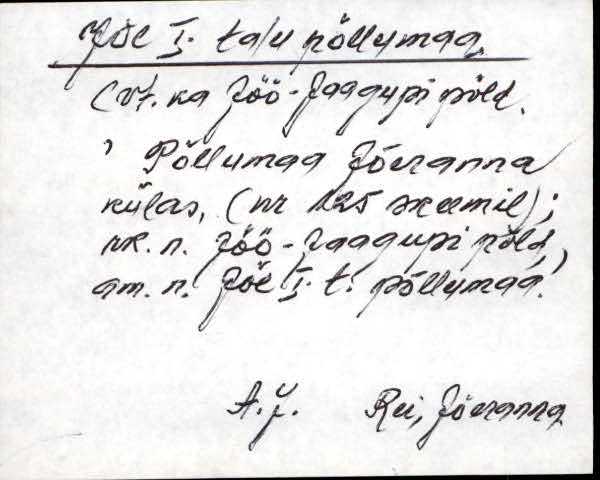 Jõe I. talu põllumaa.
(vt. ka Jöö-Jaagupi põld.
' Põllumaa Jõeranna
külas, (nr 125 skeemil);
rk. n. Jöö-Jaagupi põld,
am. n. Jõe I. t. põllumaa.'
A. J. Rei, Jõeranna